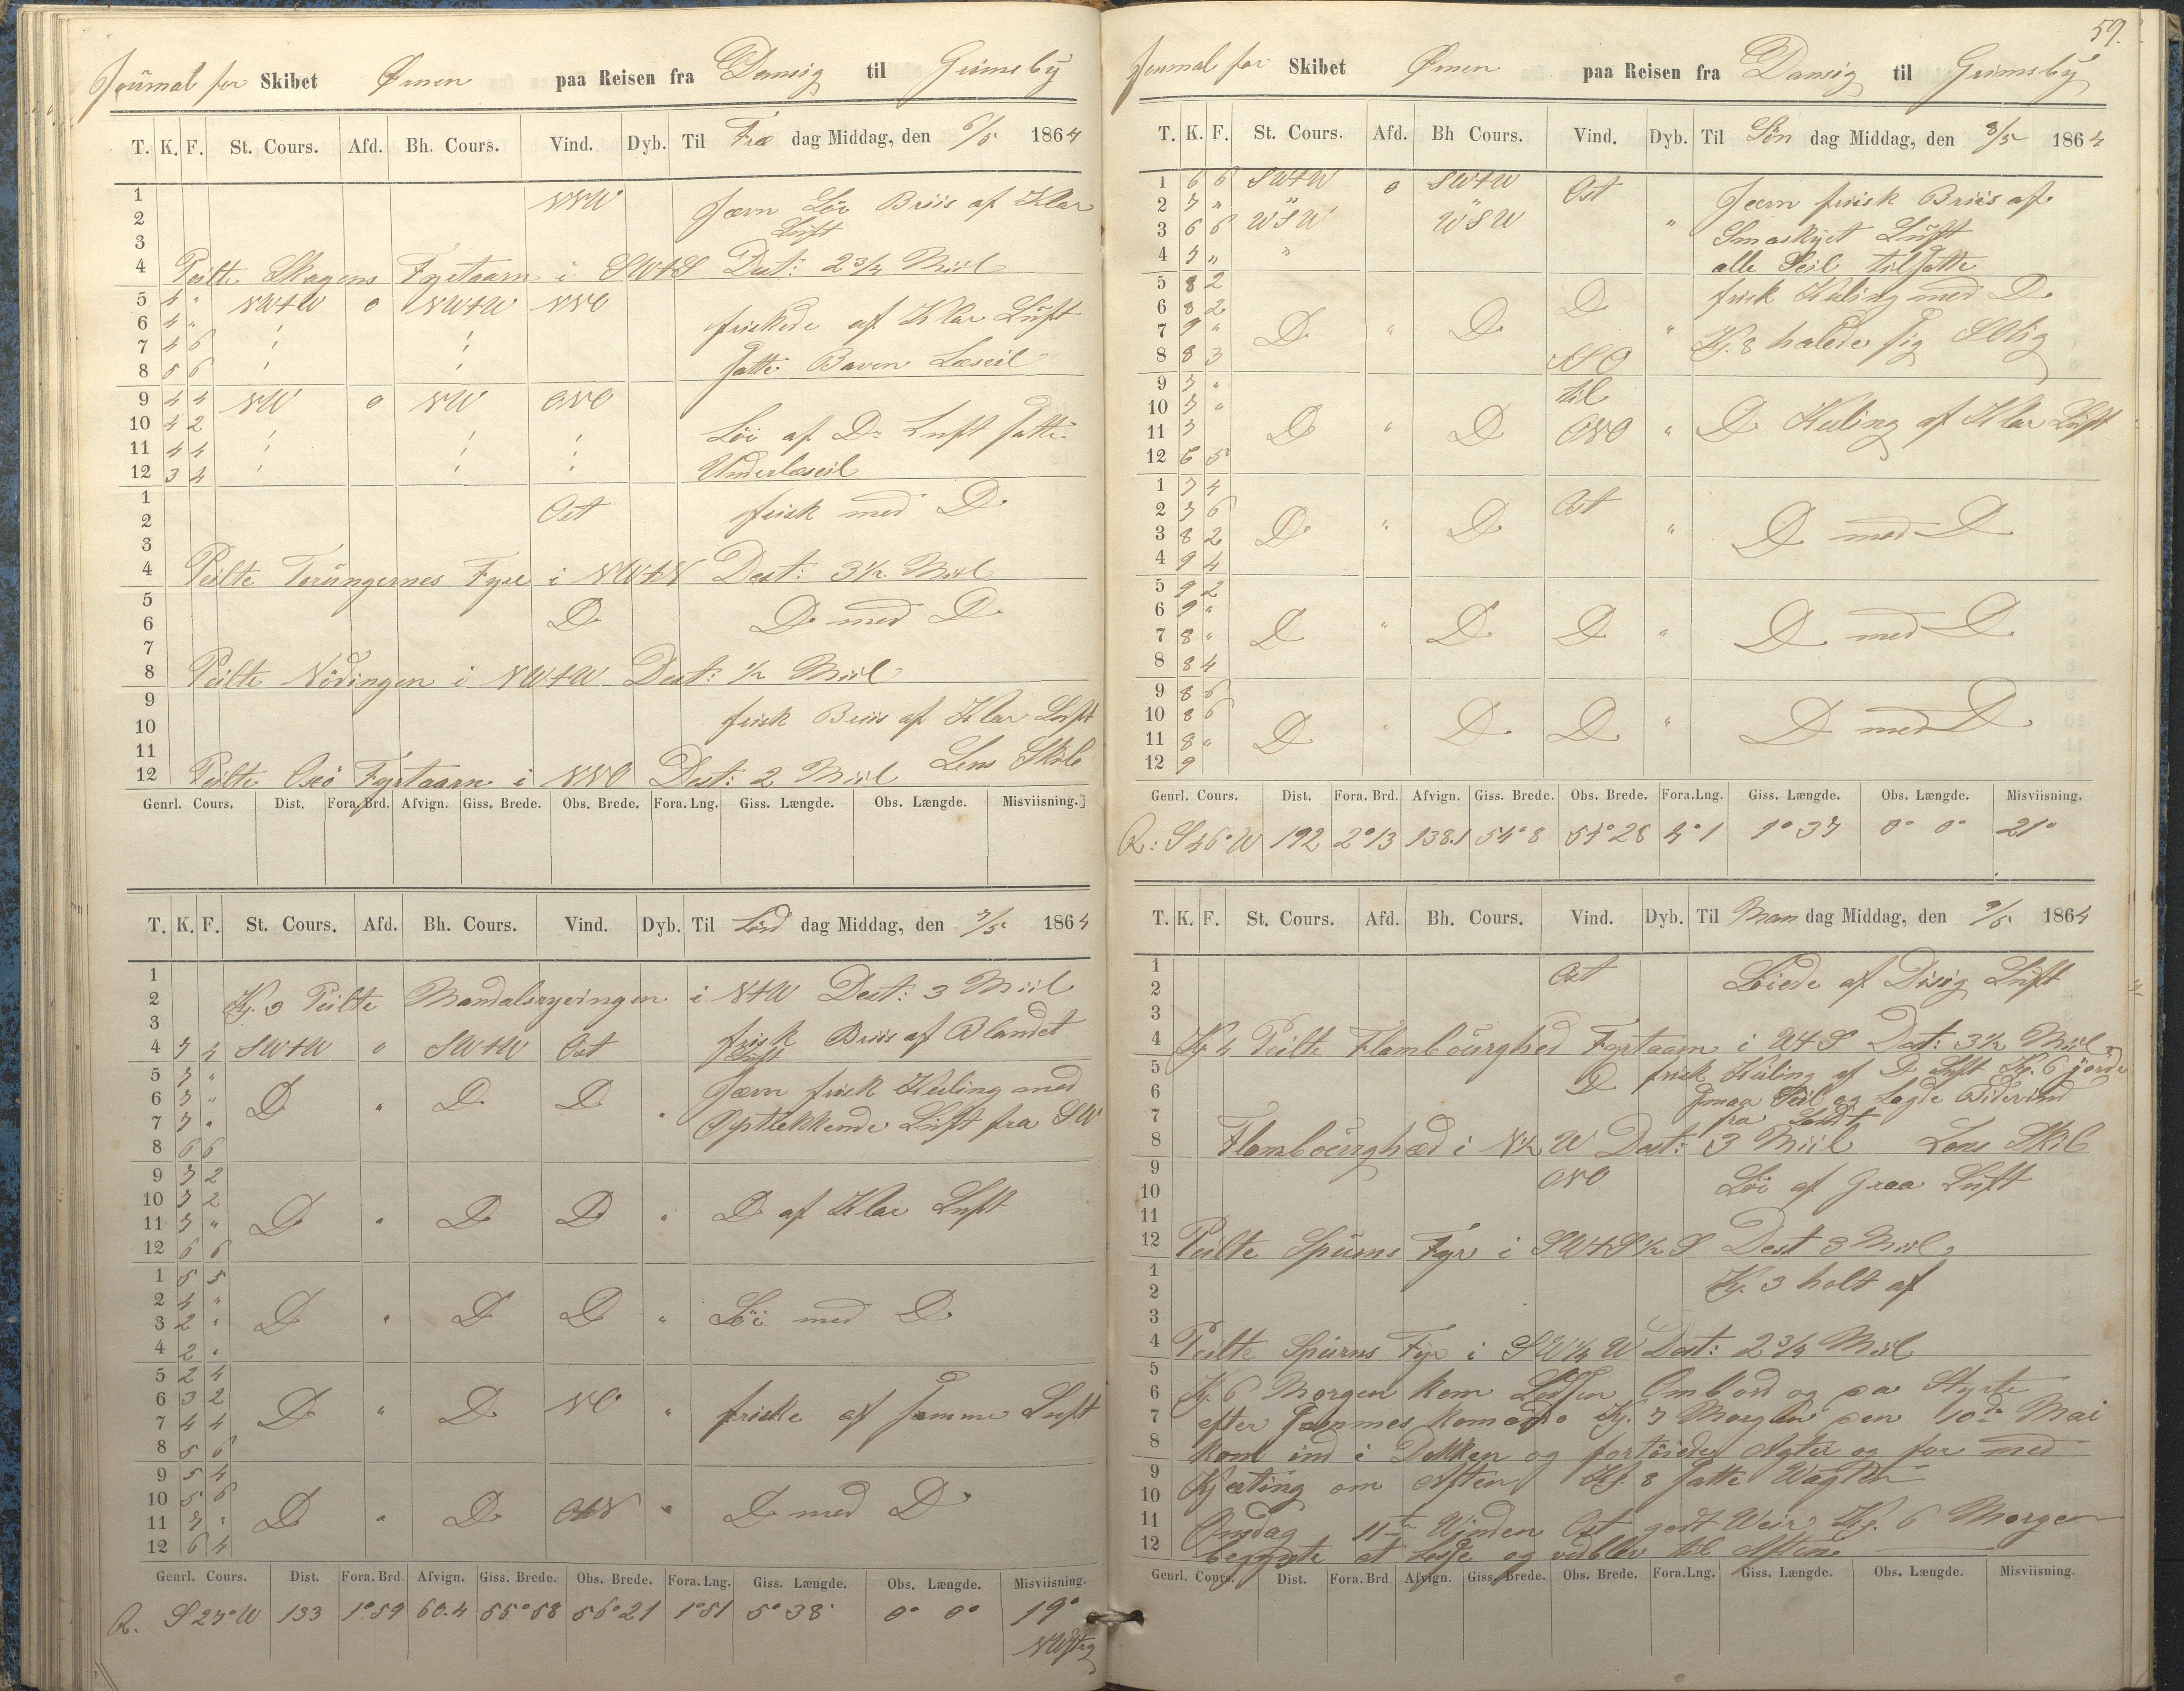 Journal for Skibet Ørnen paa Reisen fra Dansig til Grimsby
T. K. F. St. Cours. Afd. Bh. Cours. Vind. Dyb. Til Fre dag Middag, den 6/5 1864
1 NNW Jævn Löi Briis af Klar
2 Luft
3
4 Peilte Skagens Fyrtaarn i SWtS Dest: 2 3/4 Miil
5 4 " NWtW 0 NWtW NNO
6 4 " friskede af Klar Luft
7 4 6
8 5 6 satte Baven Læseil
9 4 4 NW 0 NW ONO
10 4 2 Löi af Do Luft satte
11 4 4
12 3 4 Underlæseil
1 Ost frisk med Do
2
3
4 Peilte Torungernes Fyre i NWtN Dest: 3 1/2 Miil
5 Do Do med Do
6
7
8 Peilte Nidingen i NWtW Dest: 1/2 Miil
9
10 frisk Briis af Klar Luft
11 Lens Skib
12 Peilte Oxö Fyrtaarn i NNO Dest: 2 Miil
Genrl. Cours. Dist. Fora. Brd. Afvign. Giss. Brede. Obs. Brede. Fora. Lng. Giss. Længde. Obs. Længde. Misviisning.
T. K. F. St. Cours. Afd. Bh. Cours. Vind. Dyb. Til Lörd dag Middag, den 7/5 1864
1
2 Kj. 3 Peilte Mandalsryeingen i NtW Dest: 3 Miil
3 frisk Briis af Blandet
4 7 4 SWtW 0 SWtW Ost Luft
5 7 " Jævn frisk Kuling med
6 7 " Do " Do Do "
7 7 " Optrekkende Luft fra SW
8 6 6
9 7 2
10 7 2 Do af Klar Luft
11 7 " Do " Do Do "
12 6 6
1 5 5
2 4 " Löi med Do
3 2 " Do " Do Do "
4 2 "
5 2 4
6 3 2 Do " Do NO "
7 4 4 friske af samme Luft
8 5 6
9 5 4
10 5 6 Do med Do
11 7 " Do " Do OtN "
12 6 4
Genrl. Cours. Dist. Fora. Brd. Afvign. Giss. Brede. Obs. Brede. Fora. Lng. Giss. Længde. Obs. Længde. Misviisning.
R. S 27° W 133 1°59 60.4 55°58 56°21 1°51 5°38 0° 0° 19°
59.
Journal for Skibet Ørnen paa Reisen fra Dansig til Grimsby
T. K. F. St. Cours. Afd. Bh Cours. Vind. Dyb. Til Sön dag Middag, den 8/5 1864
1 6 6 SWtW 0 SWtW Ost Jævn frisk Briis af
2 7 " " "
3 6 6 WSW WSW " Smaskyet Luft
4 7 " " alle Seil tilsatte
5 8 2 frisk Kuling med Do
6 8 2 Do
7 9 " Do " Do " Kj. 8 halede sig SOlig
8 8 3 SSO
9 7 " til
10 7 "
11 7 Do " Do ONO " Do Kuling af Klar Luft
12 6 5
1 7 4
2 7 6 Ost
3 8 2 Do " Do " Do med Do
4 9 4
5 9 2
6 9 "
7 8 " Do " Do Do " Do med Do
8 8 4
9 8 6
10 8 6
11 8 " Do " Do Do " Do med Do
12 9
Genrl. Cours. Dist. Fora. Brd. Afvign. Giss. Brede. Obs. Brede. Fora. Lng. Giss. Længde. Obs. Længde. Misviisning.
R: S 46° W 192 2°13 138.1 54°8 54°28 4°1 1°37 0° 0° 21°
T. K. F. St. Cours. Afd. Bh. Cours. Vind. Dyb. Til Man dag Middag, den 9/5 1864
1 Ost Löiede af Disig Luft
2
3
4 Kj. 4 Peilte Flambourghed Fyrtaarn i WtS Dest: 3 1/2 Miil
5 Do frisk Kuling af Do Luft Kj. 6 jorde
6 smaa Seil og Lagde Bidevind
7 fra Landt
8 Flambourghed i N 1/2 W Dest: 3 Miil Lens Skib
9 ONO Löi af Graa Luft
10
11
12 Peilte Spurns Fyr i SWtS 1/2 S Dest 3 Miil
1 Kj. 3 holt af
2
3
4 Peilte Spurns Fyr i SW 1/4 W Dest: 2 3/4 Miil
5
6 Kj. 6 Morgen kom Lodsen Ombord og paa Styrte
7 efter sammes komado Kj. 7 Morgen den 10de Mai
8 kom ind i Dokken og fortöiede Agter og for med
9 Kjæting om Aften Kj. 8 satte Vagten
10
11 Onsdag 11te Vinden Ost godt Veir Kj. 6 Morgen
12 begynte at Losse og vedblev til Aften
Genrl. Cours. Dist. Fora. Brd. Afvign. Giss. Brede. Obs. Brede. Fora. Lng. Giss. Længde. Obs. Længde. Misviisning.